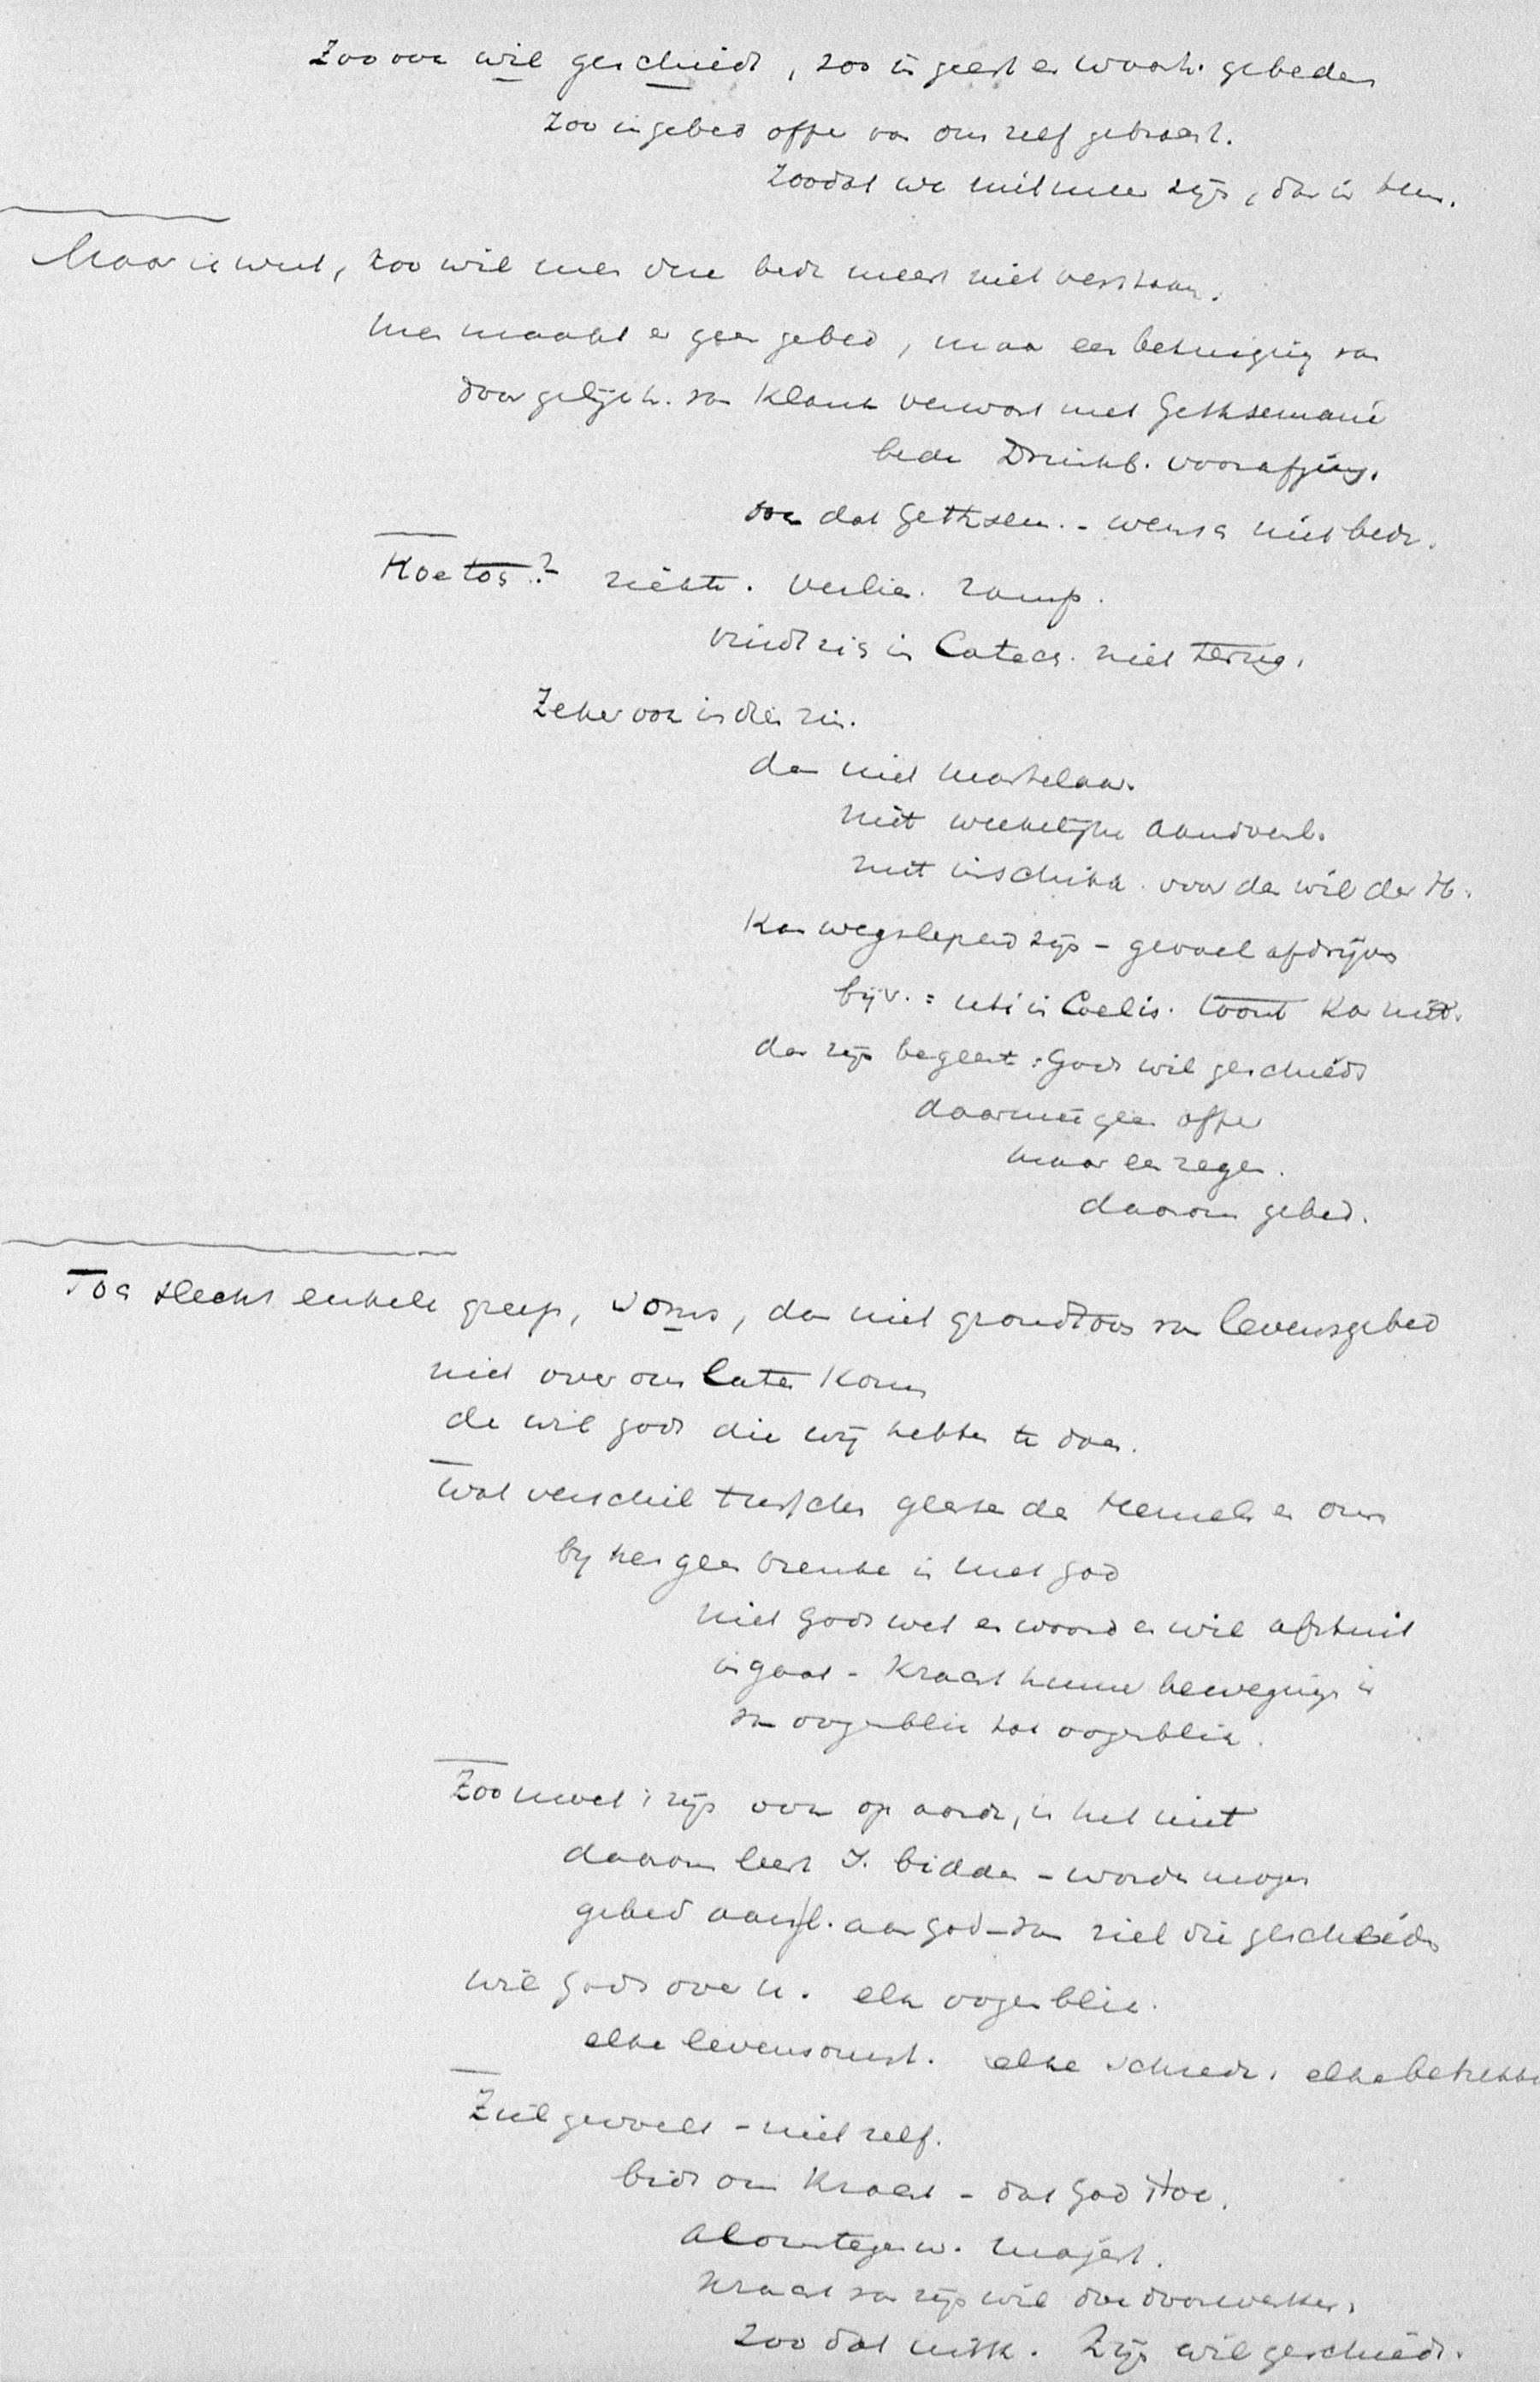 Zoo ook wil geschiedt, zoo in geest en waarh. gebeden
zoo in gebed offer van ons zelf gebracht.
zoodat we niet meer zijn, dan in hem.
Maar ik weet, zoo wil men deze bede meest niet verstaan.
men maakt er geen gebed, maar een betuiging van
door gelijkh. van klank verward met Gethsemané
bede Drinkb. voorafging.
ook dat Gethsem. - wensch niet bede.
Hoe tos? ziekte. verlies. ramp.
vindt zich in Catech. niet terug.
Zeker ook in dien zin.
dan niet martelaar.
niet weekelijke aandoenl.
niet inschikk. voor den wil des H.
Kan wegslepend zijn - gevoel afdrijven
bijv.: uti in Coelis. toont kan niet.
dan zijn begeert: Gods wil geschiede
daarmee geen offer
maar een zegen.
daarom gebed.
Toch slechts enkele greep, soms, dan niet grondtoon van levensgebed
niet over ons laten komen
de wil Gods die wij hebben te doen.
Wat verschil tusschen geesten der Hemelen en ons
bij hen geen breuke is met God
niet Gods wet en woord en wil afstuit
ingaat - kracht hunner beweging is
van oogenblik tot oogenblik.
Zoo moet 't zijn ook op aarde, is het niet
daarom leert J. bidden - worde mogen
gebed aan God - van ziel die geschiede
wil Gods over u. elk oogenblik.
elke levensomst. elke schrede. elke betrekki
Ziel gevoelt - niet zelf.
bidt om Kracht - dat God Hoe.
alomtegenw. majest.
kracht van zijn wil doe doorwerken.
zoo dat Zijn wil geschiede.